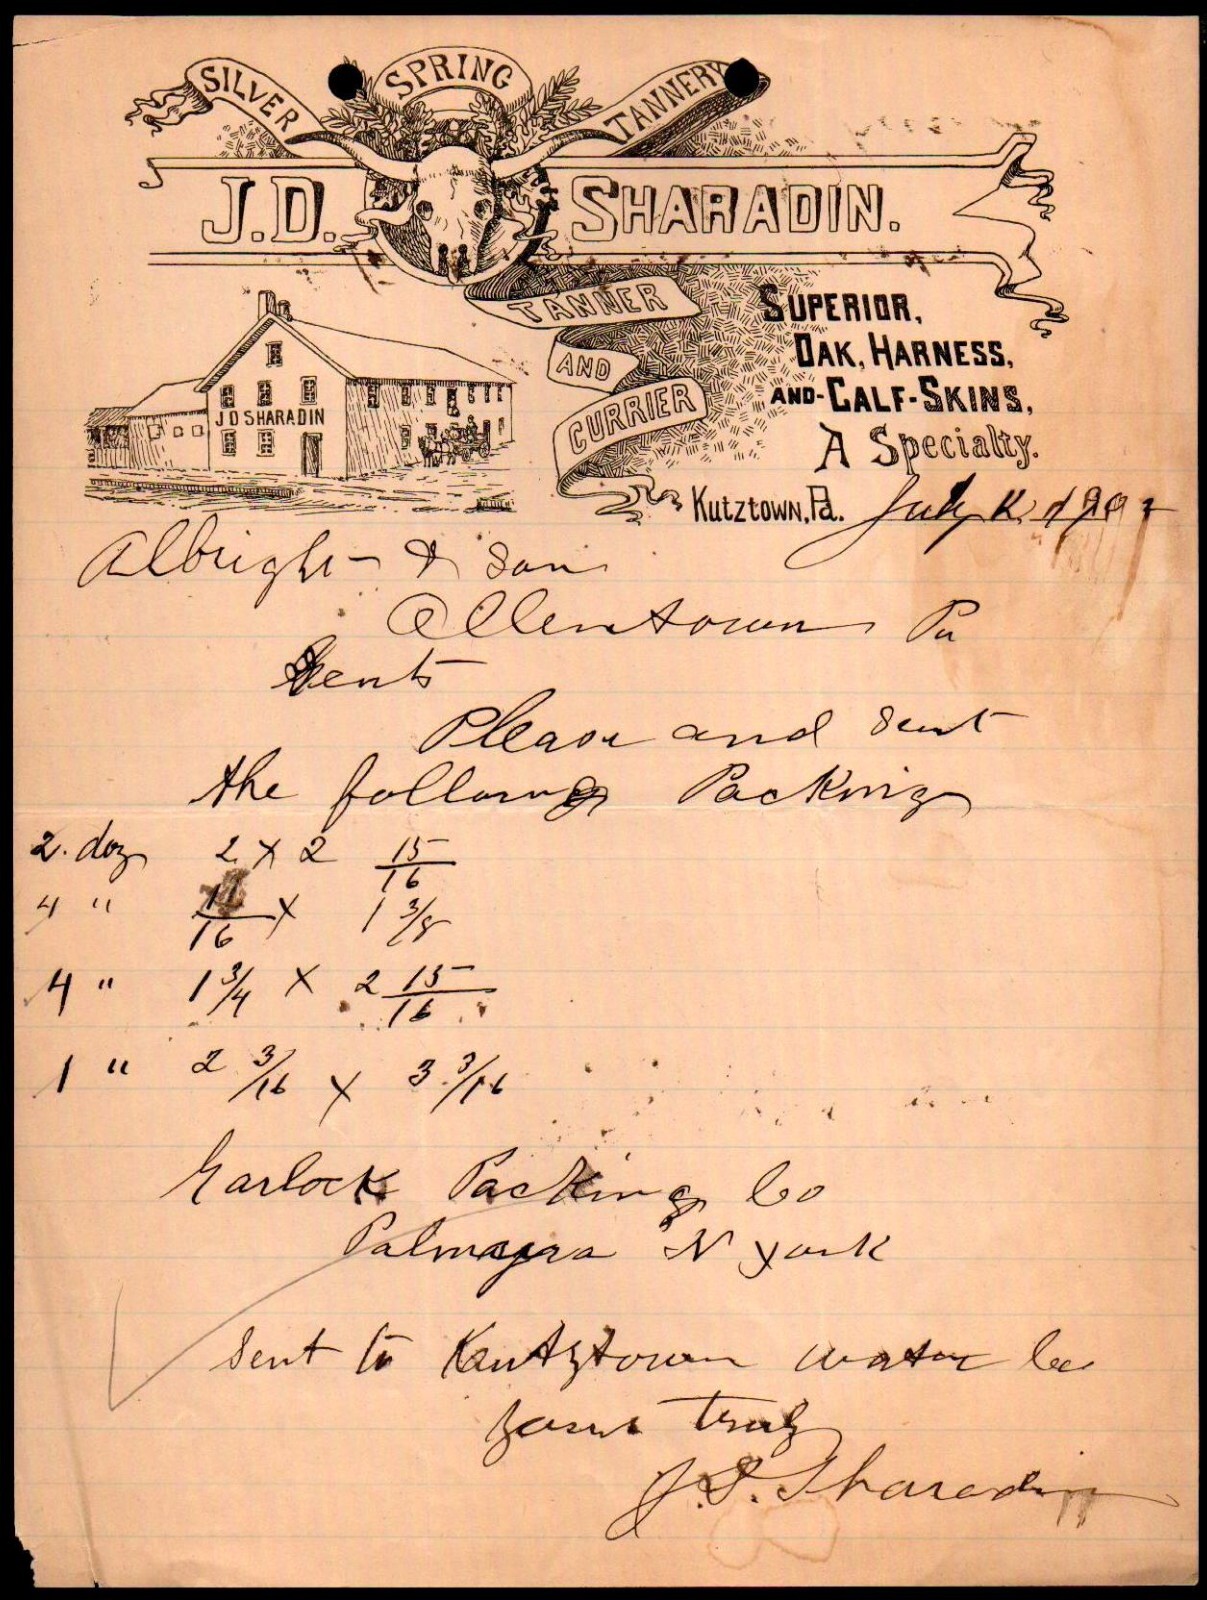 SILVER SPRING TANNERY
J.D. SHARADIN.
TANNER
AND
CURRIER
SUPERIOR,
OAK, HARNESS,
AND-CALF-SKINS,
A Specialty.
J D SHARADIN
Kutztown, Pa. July
Albright & Son
Allentown Pa
Gents
Please and sent
the following Packing
2. doz 2 x 2 15/16
4 " 11/16 x 1 3/8
4 " 1 3/4 x 2 15/16
1 " 2 3/16 x 3 3/16
Garlock Packing Co
Palmayra N York
Sent to Kutztown water Co
yours truly
J. D. Sharadin